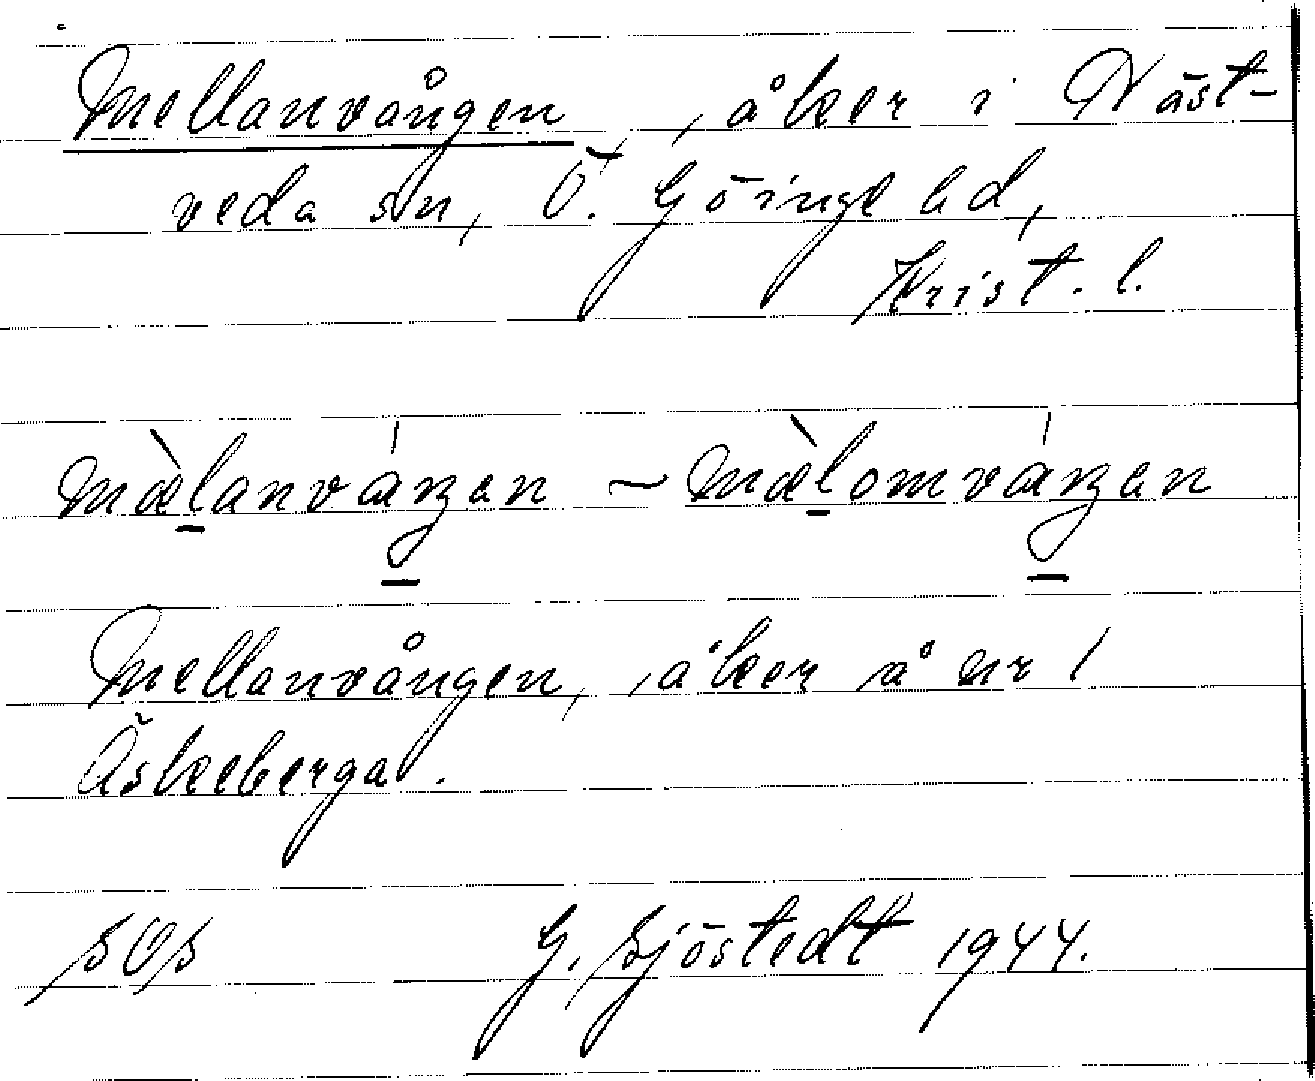 Mellanvången, åker i Näst-
veda sn, Ö. Göinge hd,
Krist. l.
mæ̀l̲anváŋ̲en ~ mæ̀l̲omváŋ̲en
Mellanvången, åker å nr 1
Äskeberga.
SOS G. Sjöstedt 1944.